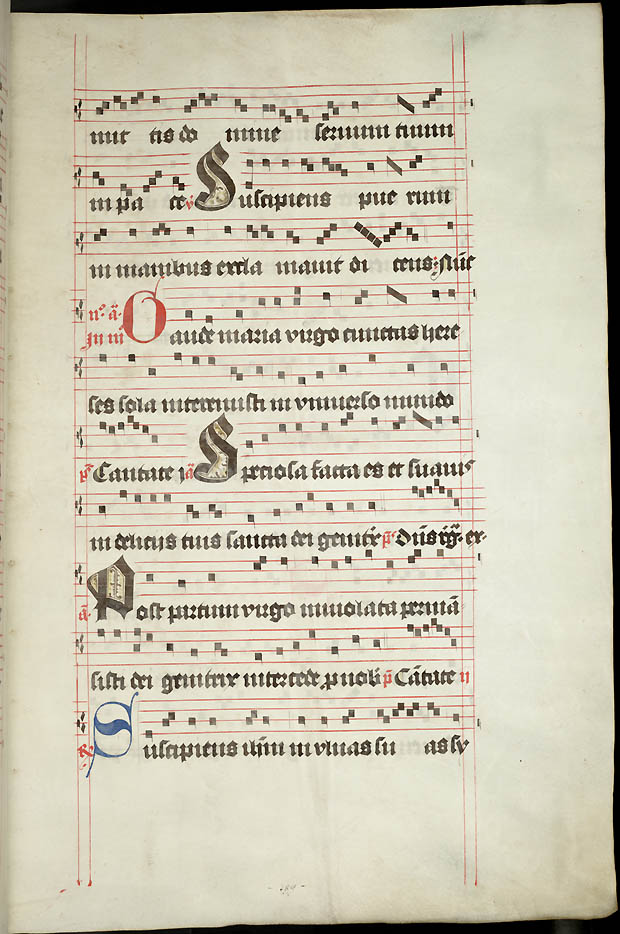 mit tis do mine servum tuum
in pa ce v Suscipiens pue rum
in manibus excla mavit di cens Nūc
In iij° n° a Gaude maria virgo cunctas here
ses sola interemisti in vniverso mundo
ps Cantate ij a Speciosa facta es et suavis
in delicijs tuis sancta dei genitr ps Dn̄s rg̃ ex
a Post partum virgo inviolata permā
sisti dei genitrix intercede pro nobis ps Cātate ij
R Suscipiens ihm in vlnas su as sy